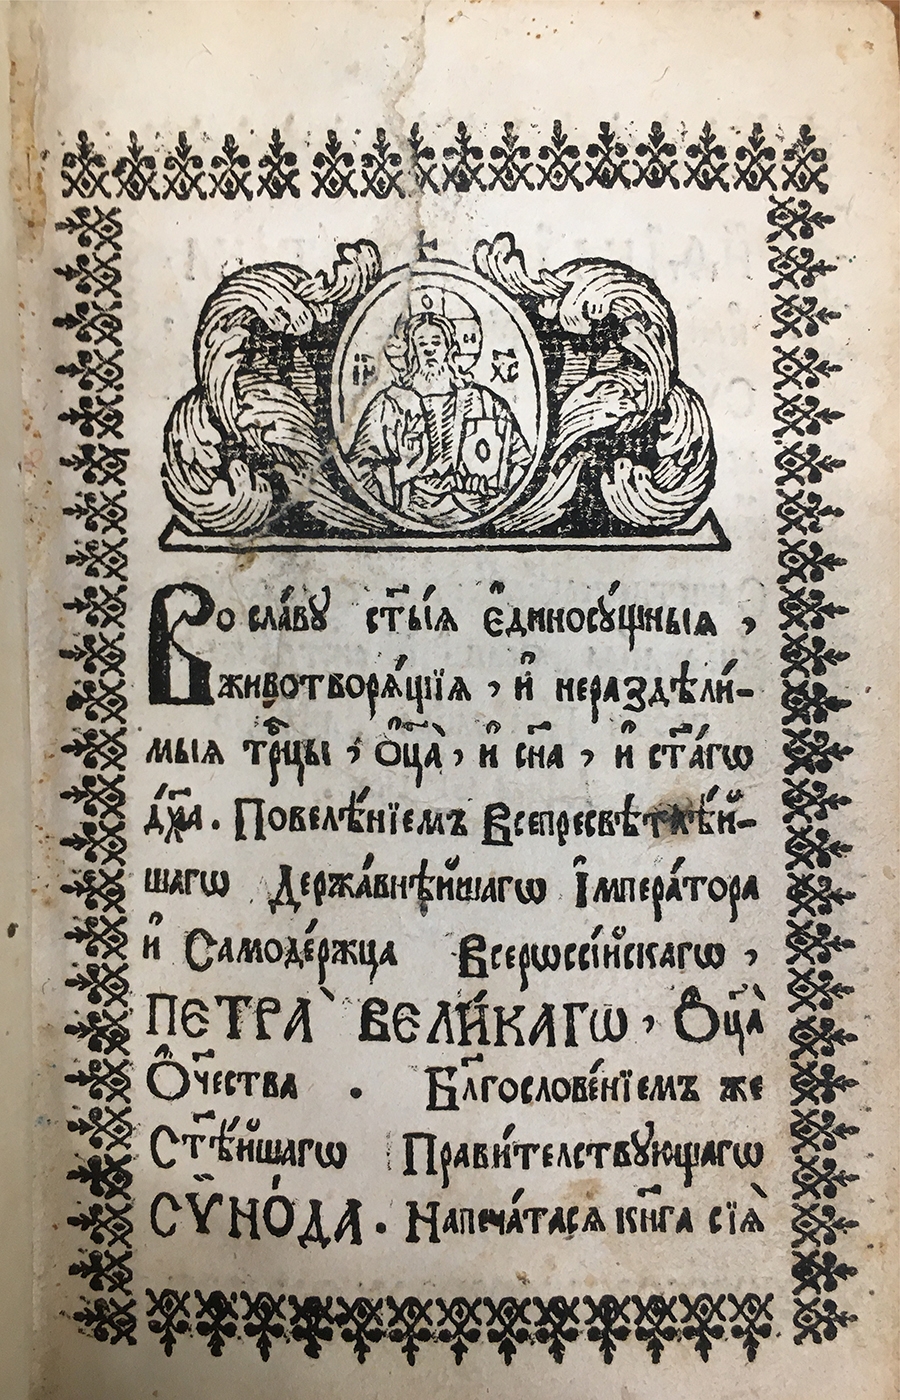 І҃И҃ Х҃С
Во сла́вꙋ ст҃ы́ѧ є҆диносꙋ́щныѧ ,
животворѧ́щїѧ , и҆ нераздѣли́-
мыѧ трⷪ҇цы , Ѻ҆ц҃а̀ , и҆ сн҃а , и҆ ст҃а́гѡ
дх҃а . Повелѣ́нїемъ Всепресвѣтлѣ́й-
шагѡ Держа́внѣйшагѡ І҆мпера́тора
и҆ Самоде́ржца Всерѡссі́йскагѡ ,
ПЕТРА̀ ВЕЛИ́КАГѠ , Ѻ҆ц҃а̀
Ѻ҆ч҃ества . Бл҃гослове́нїемъ же
Ст҃ѣ́йшагѡ Прави́телствꙋющагѡ
СѴНО́ДА . Напеча́тасѧ кн҃га сїѧ̀